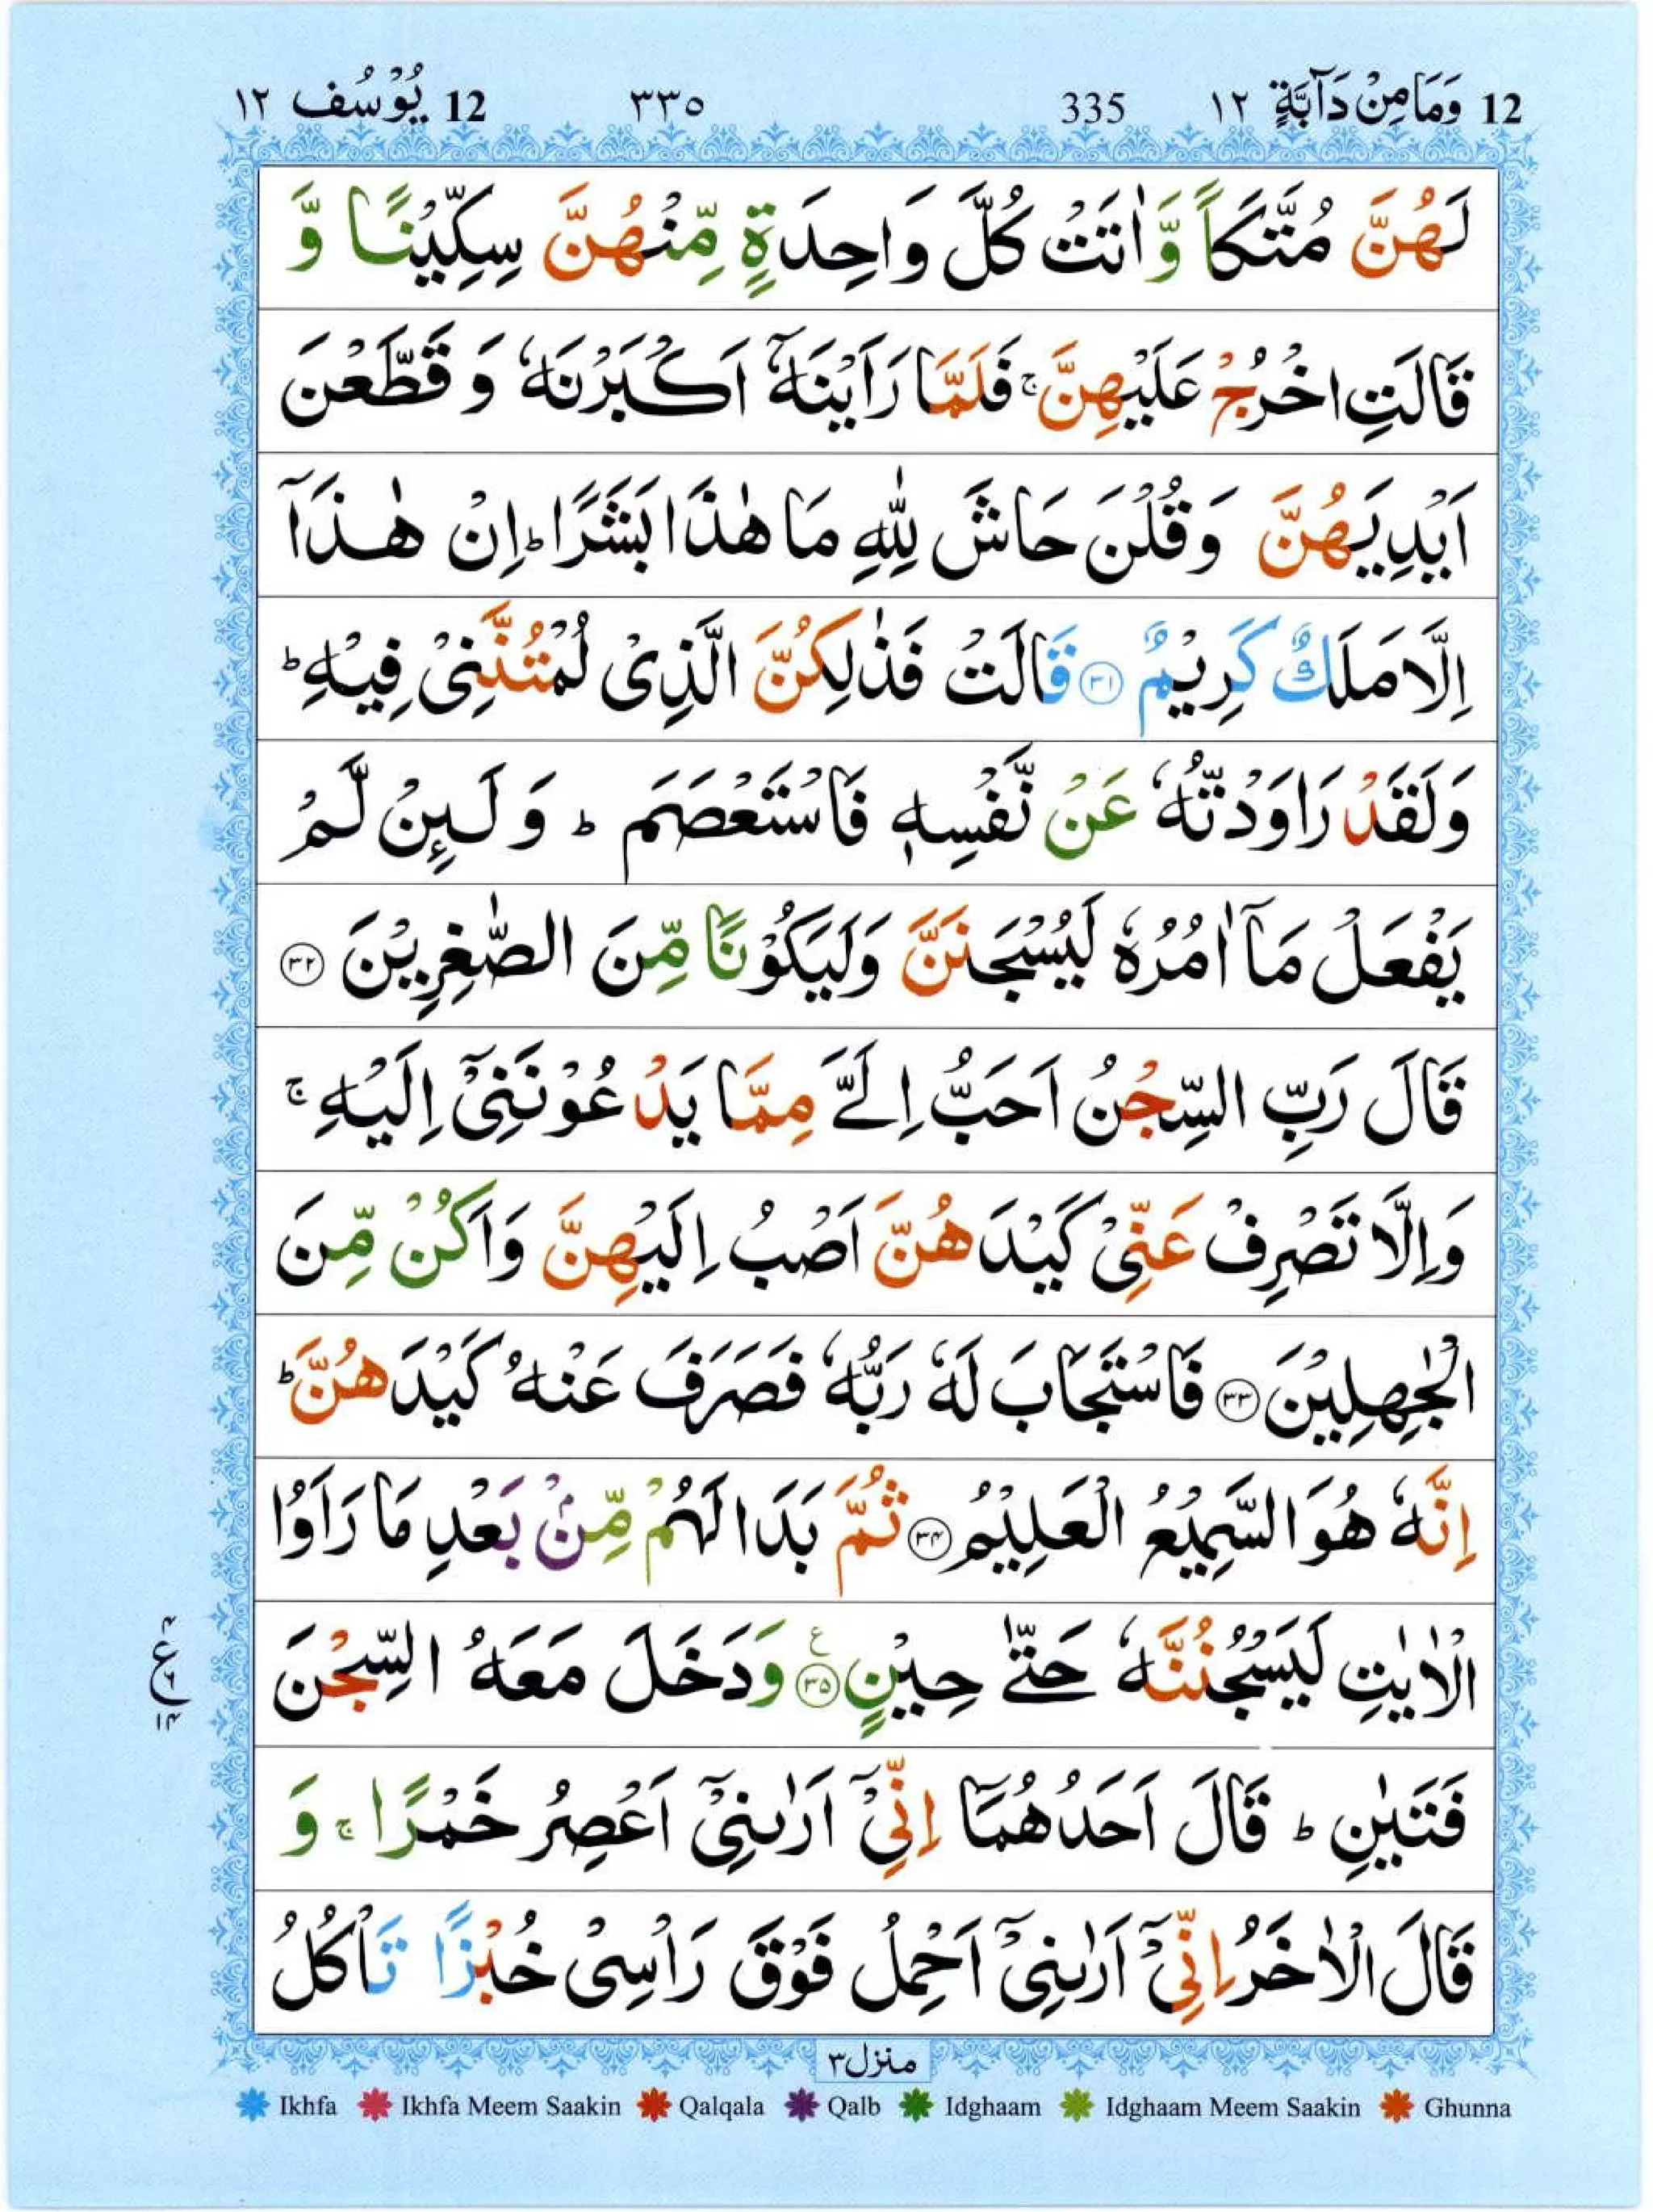 12 وَمَا مِنْ دَآبَّةٍ ١٢ 335 ٣٣٥ 12 يُوْسُف ١٢
لَهُنَّ مُتَّكَاً وَّاٰتَتْ كُلَّ وَاحِدَةٍ مِّنْهُنَّ سِكِّيْنًا وَّ
قَالَتِ اخْرُجْ عَلَيْهِنَّ ۚ فَلَمَّا رَاَيْنَهٗۤ اَكْبَرْنَهٗ وَ قَطَّعْنَ
اَيْدِيَهُنَّ وَقُلْنَ حَاشَ لِلّٰهِ مَا هٰذَا بَشَرًا ؕ اِنْ هٰذَاۤ
اِلَّا مَلَكٌ كَرِيْمٌ ۝٣١ قَالَتْ فَذٰلِكُنَّ الَّذِىْ لُمْتُنَّنِىْ فِيْهِ ؕ
وَلَقَدْ رَاوَدْتُّهٗ عَنْ نَّفْسِهٖ فَاسْتَعْصَمَ ؕ وَ لَٮِٕنْ لَّمْ
يَفْعَلْ مَاۤ اٰمُرُهٗ لَيُسْجَنَنَّ وَلَيَكُوْنًا مِّنَ الصّٰغِرِيْنَ ۝٣٢
قَالَ رَبِّ السِّجْنُ اَحَبُّ اِلَىَّ مِمَّا يَدْعُوْنَنِىْۤ اِلَيْهِ ۚ
وَاِلَّا تَصْرِفْ عَنِّىْ كَيْدَهُنَّ اَصْبُ اِلَيْهِنَّ وَاَكُنْ مِّنَ
الْجٰهِلِيْنَ ۝٣٣ فَاسْتَجَابَ لَهٗ رَبُّهٗ فَصَرَفَ عَنْهُ كَيْدَهُنَّ ؕ
اِنَّهٗ هُوَ السَّمِيْعُ الْعَلِيْمُ ۝٣٤ ثُمَّ بَدَا لَهُمْ مِّنْۢ بَعْدِ مَا رَاَوُا
الْاٰيٰتِ لَيَسْجُنُنَّهٗ حَتّٰى حِيْنٍ ۝٣٥ ع وَدَخَلَ مَعَهُ السِّجْنَ
٤ ع ٦ ١٤
فَتَيٰنِ ؕ قَالَ اَحَدُهُمَاۤ اِنِّىْۤ اَرٰٮنِىْۤ اَعْصِرُ خَمْرًا ۚ وَ
قَالَ الْاٰخَرُ اِنِّىْۤ اَرٰٮنِىْۤ اَحْمِلُ فَوْقَ رَاْسِىْ خُبْزًا تَاْكُلُ
منزل ٣
Ikhfa Ikhfa Meem Saakin Qalqala Qalb Idghaam Idghaam Meem Saakin Ghunna